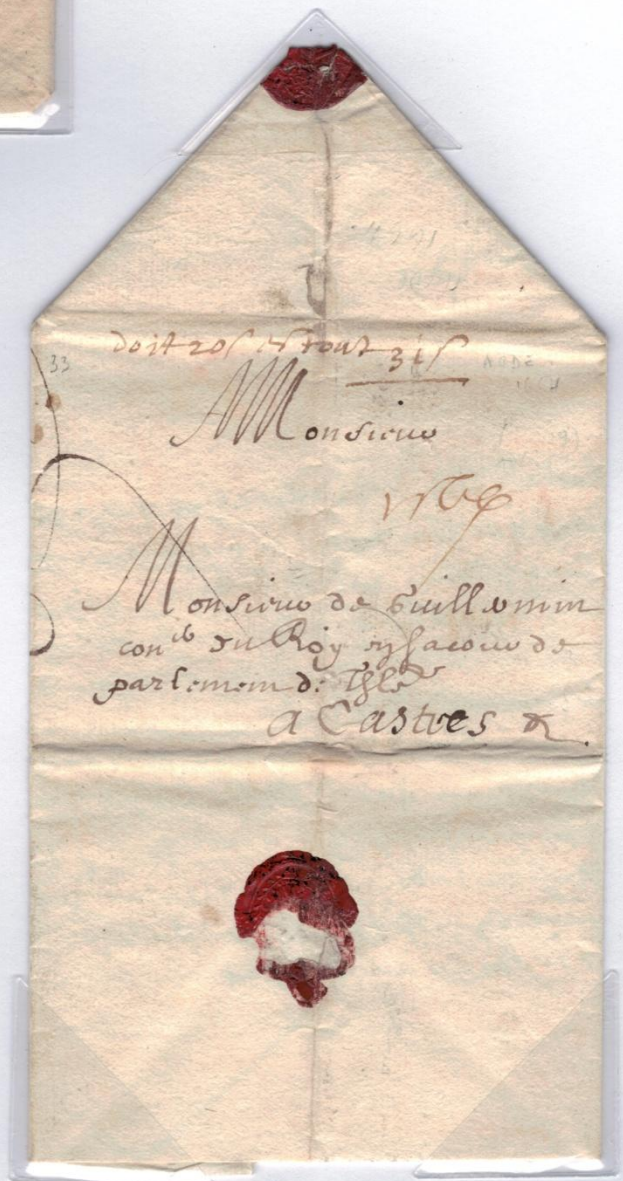 33
doit 20s et tout 31s
A Monsieur
Monsieur de Guillemin
coner du Roy en sa cour de
parlement de Thle
a Castres